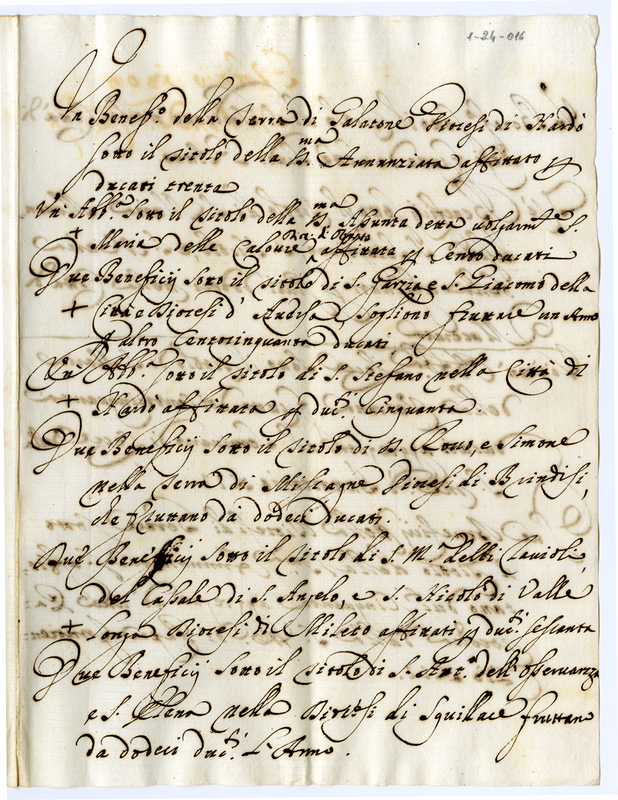 1-24-016
Un Benef.º della Terra di Galatone Diocesi di Nardò
sotto il titolo della SS.ma Annunziata affittato p
ducati trenta
Un' Abb.a sotto il titolo della SS.ma Assunta detta volgarm.te S.
+ Maria delle affittata p Cento ducati
Due Beneficij sotto il titolo di S. Garzia e S. Giacomo della
+ Città e Diocesi d' Sogliono fruttare un Anno
p l'altro Centocinquanta ducati
Un' Abb.a sotto il titolo di S. Stefano nella Città di
+ Nardò affittata p duc.ti Cinquanta.
Due Beneficij sotto il titolo di S. Rocco, e Simone
nella Terra di Misciagne Diocesi di Brindisi,
che fruttano da dodeci ducati.
Due Beneficij sotto il titolo di S. M.a delli
del Casale di S. Angelo, e S. Nicolò di Valle
+ Longa Diocesi di Mileto affittati p duc.ti sessanta
Due Beneficij sotto il titolo di S. Ant.o dell'osservanza
e S. Elena nella Diocesi di Squillace fruttano
da dodeci duc.ti l'Anno.